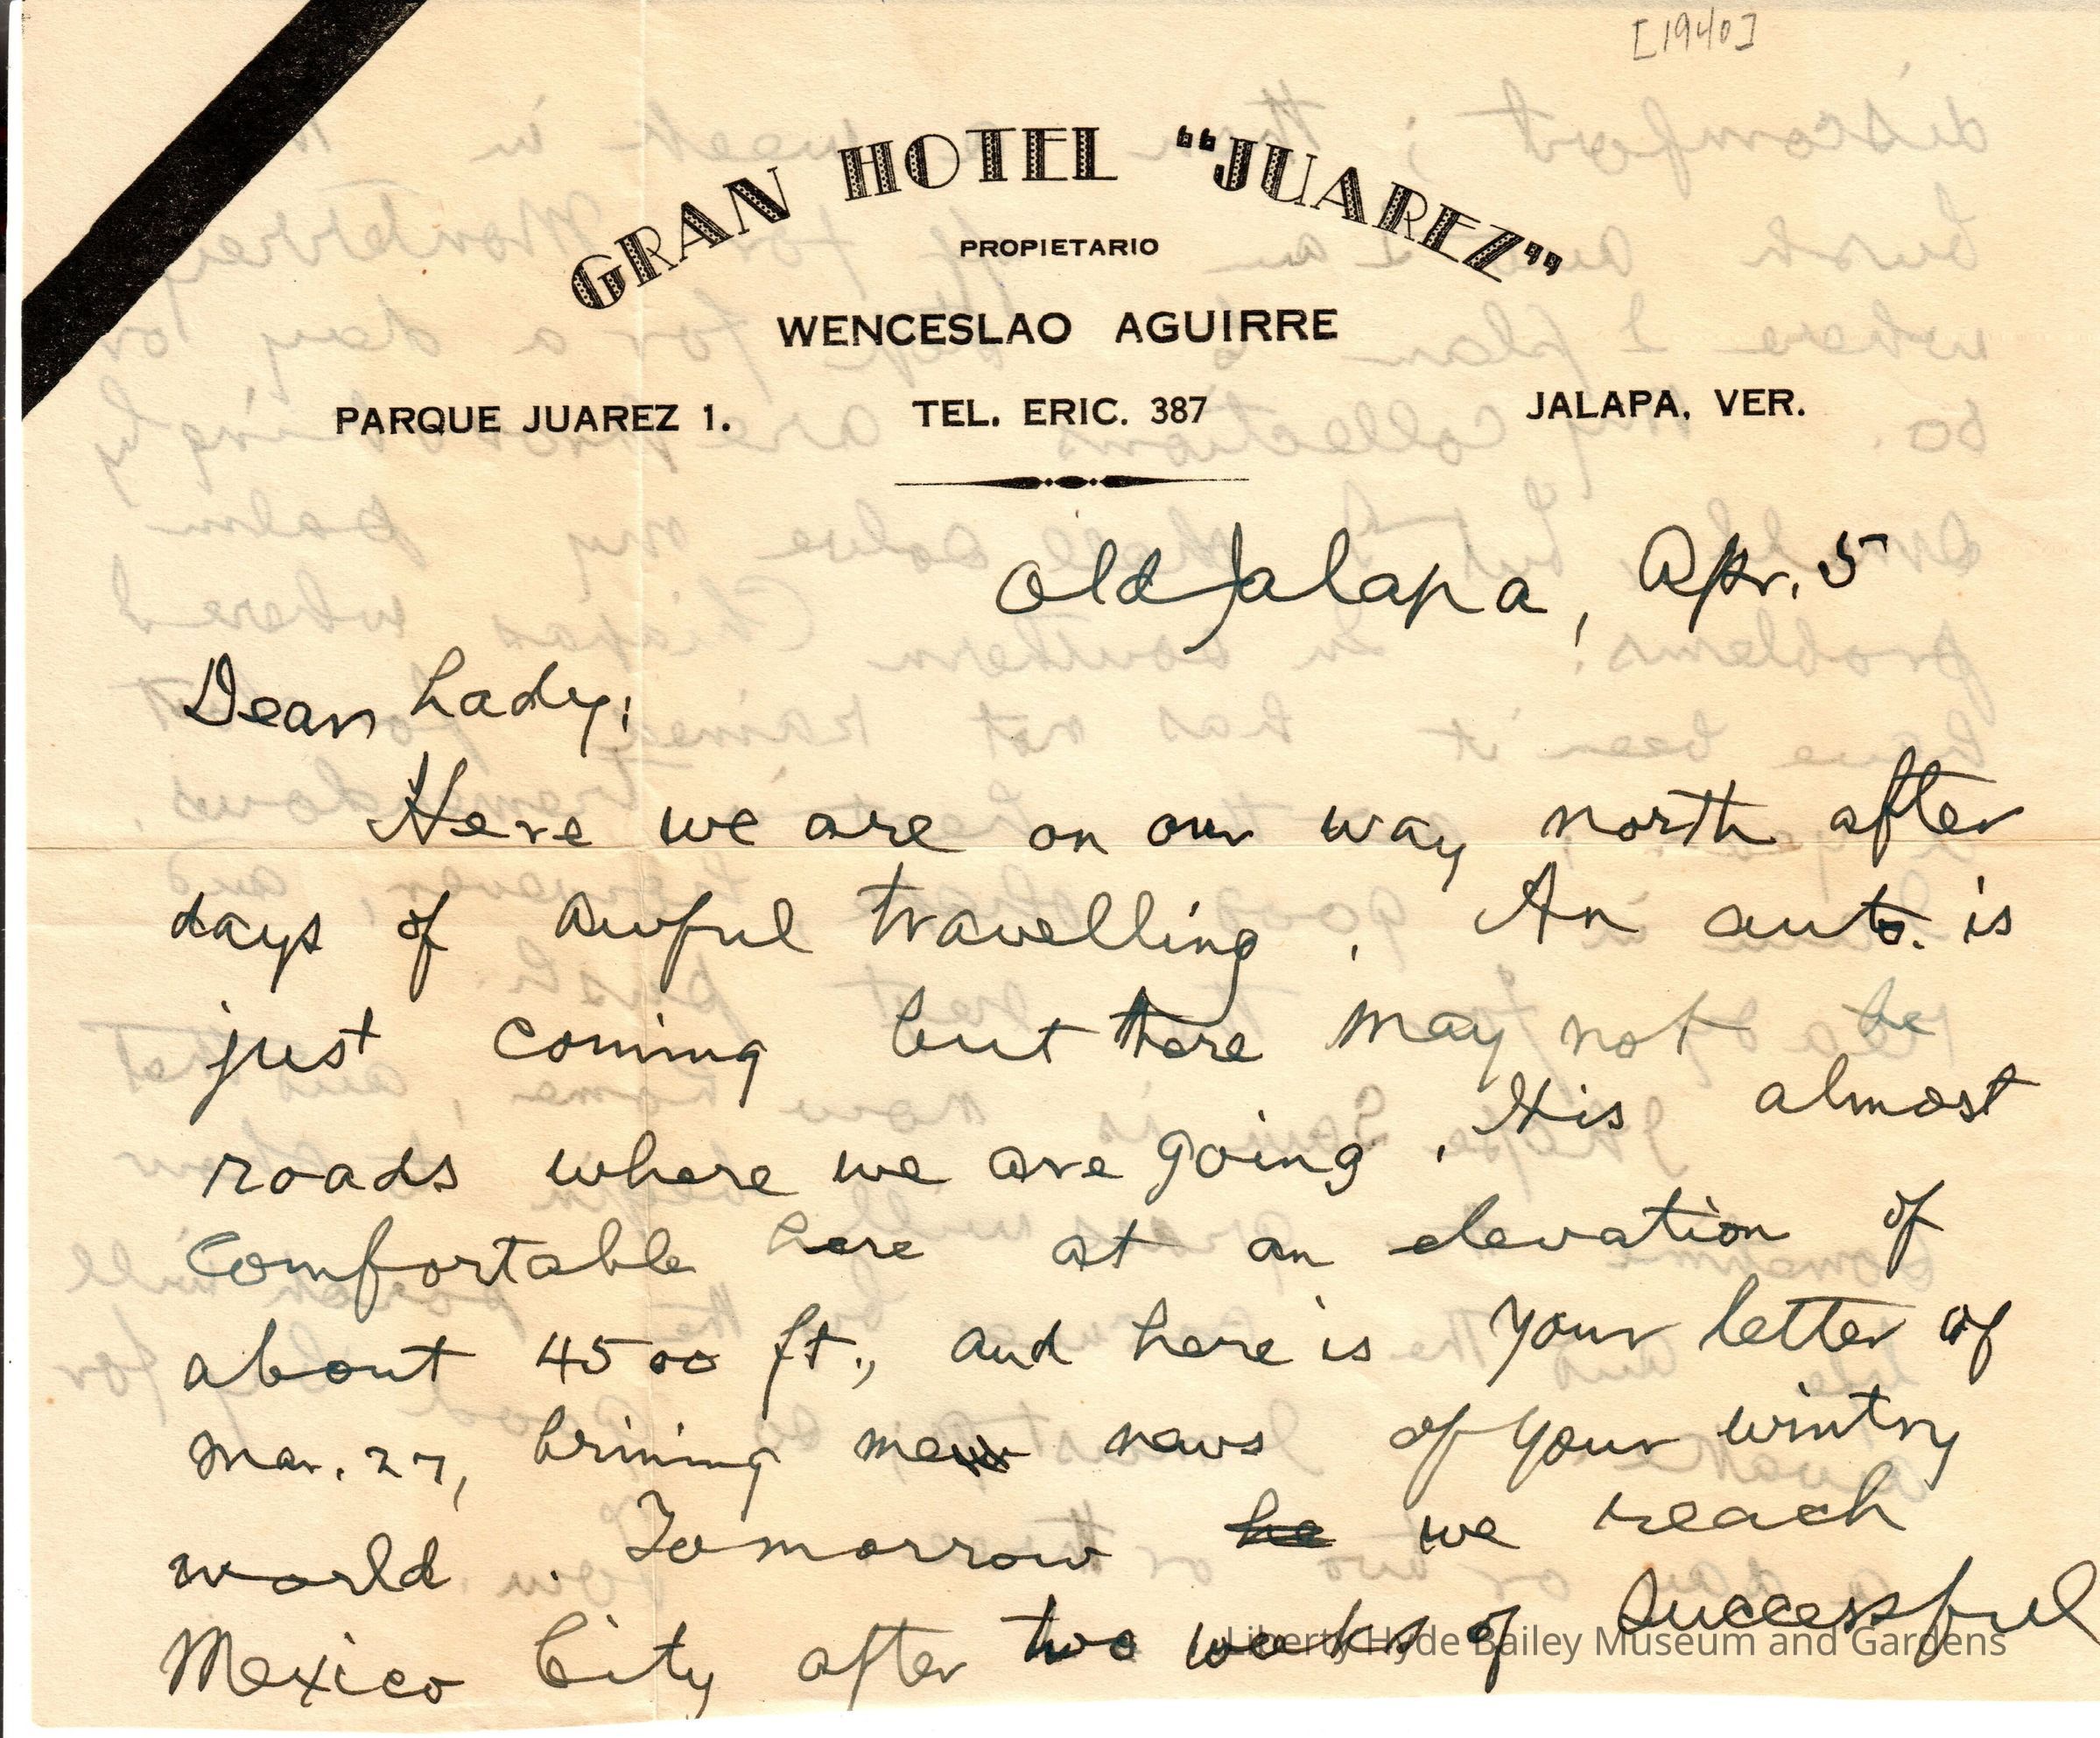 [1940]
GRAN HOTEL "JUAREZ"
PROPIETARIO
WENCESLAO AGUIRRE
PARQUE JUAREZ 1. TEL. ERIC. 387 JALAPA, VER.
Old Jalapa, Apr. 5
Dear Lady;
Here we are on our way north after
days of awful travelling. An auto. is
just coming but there may not be
roads where we are going. It is almost
comfortable here at an elevation of
about 4500 ft., and here is your letter of
Mar. 27, brining me news of your wintry
world. Tomorrow he we reach
Mexico City after two weeks of successful
Liberty Hyde Bailey Museum and Gardens